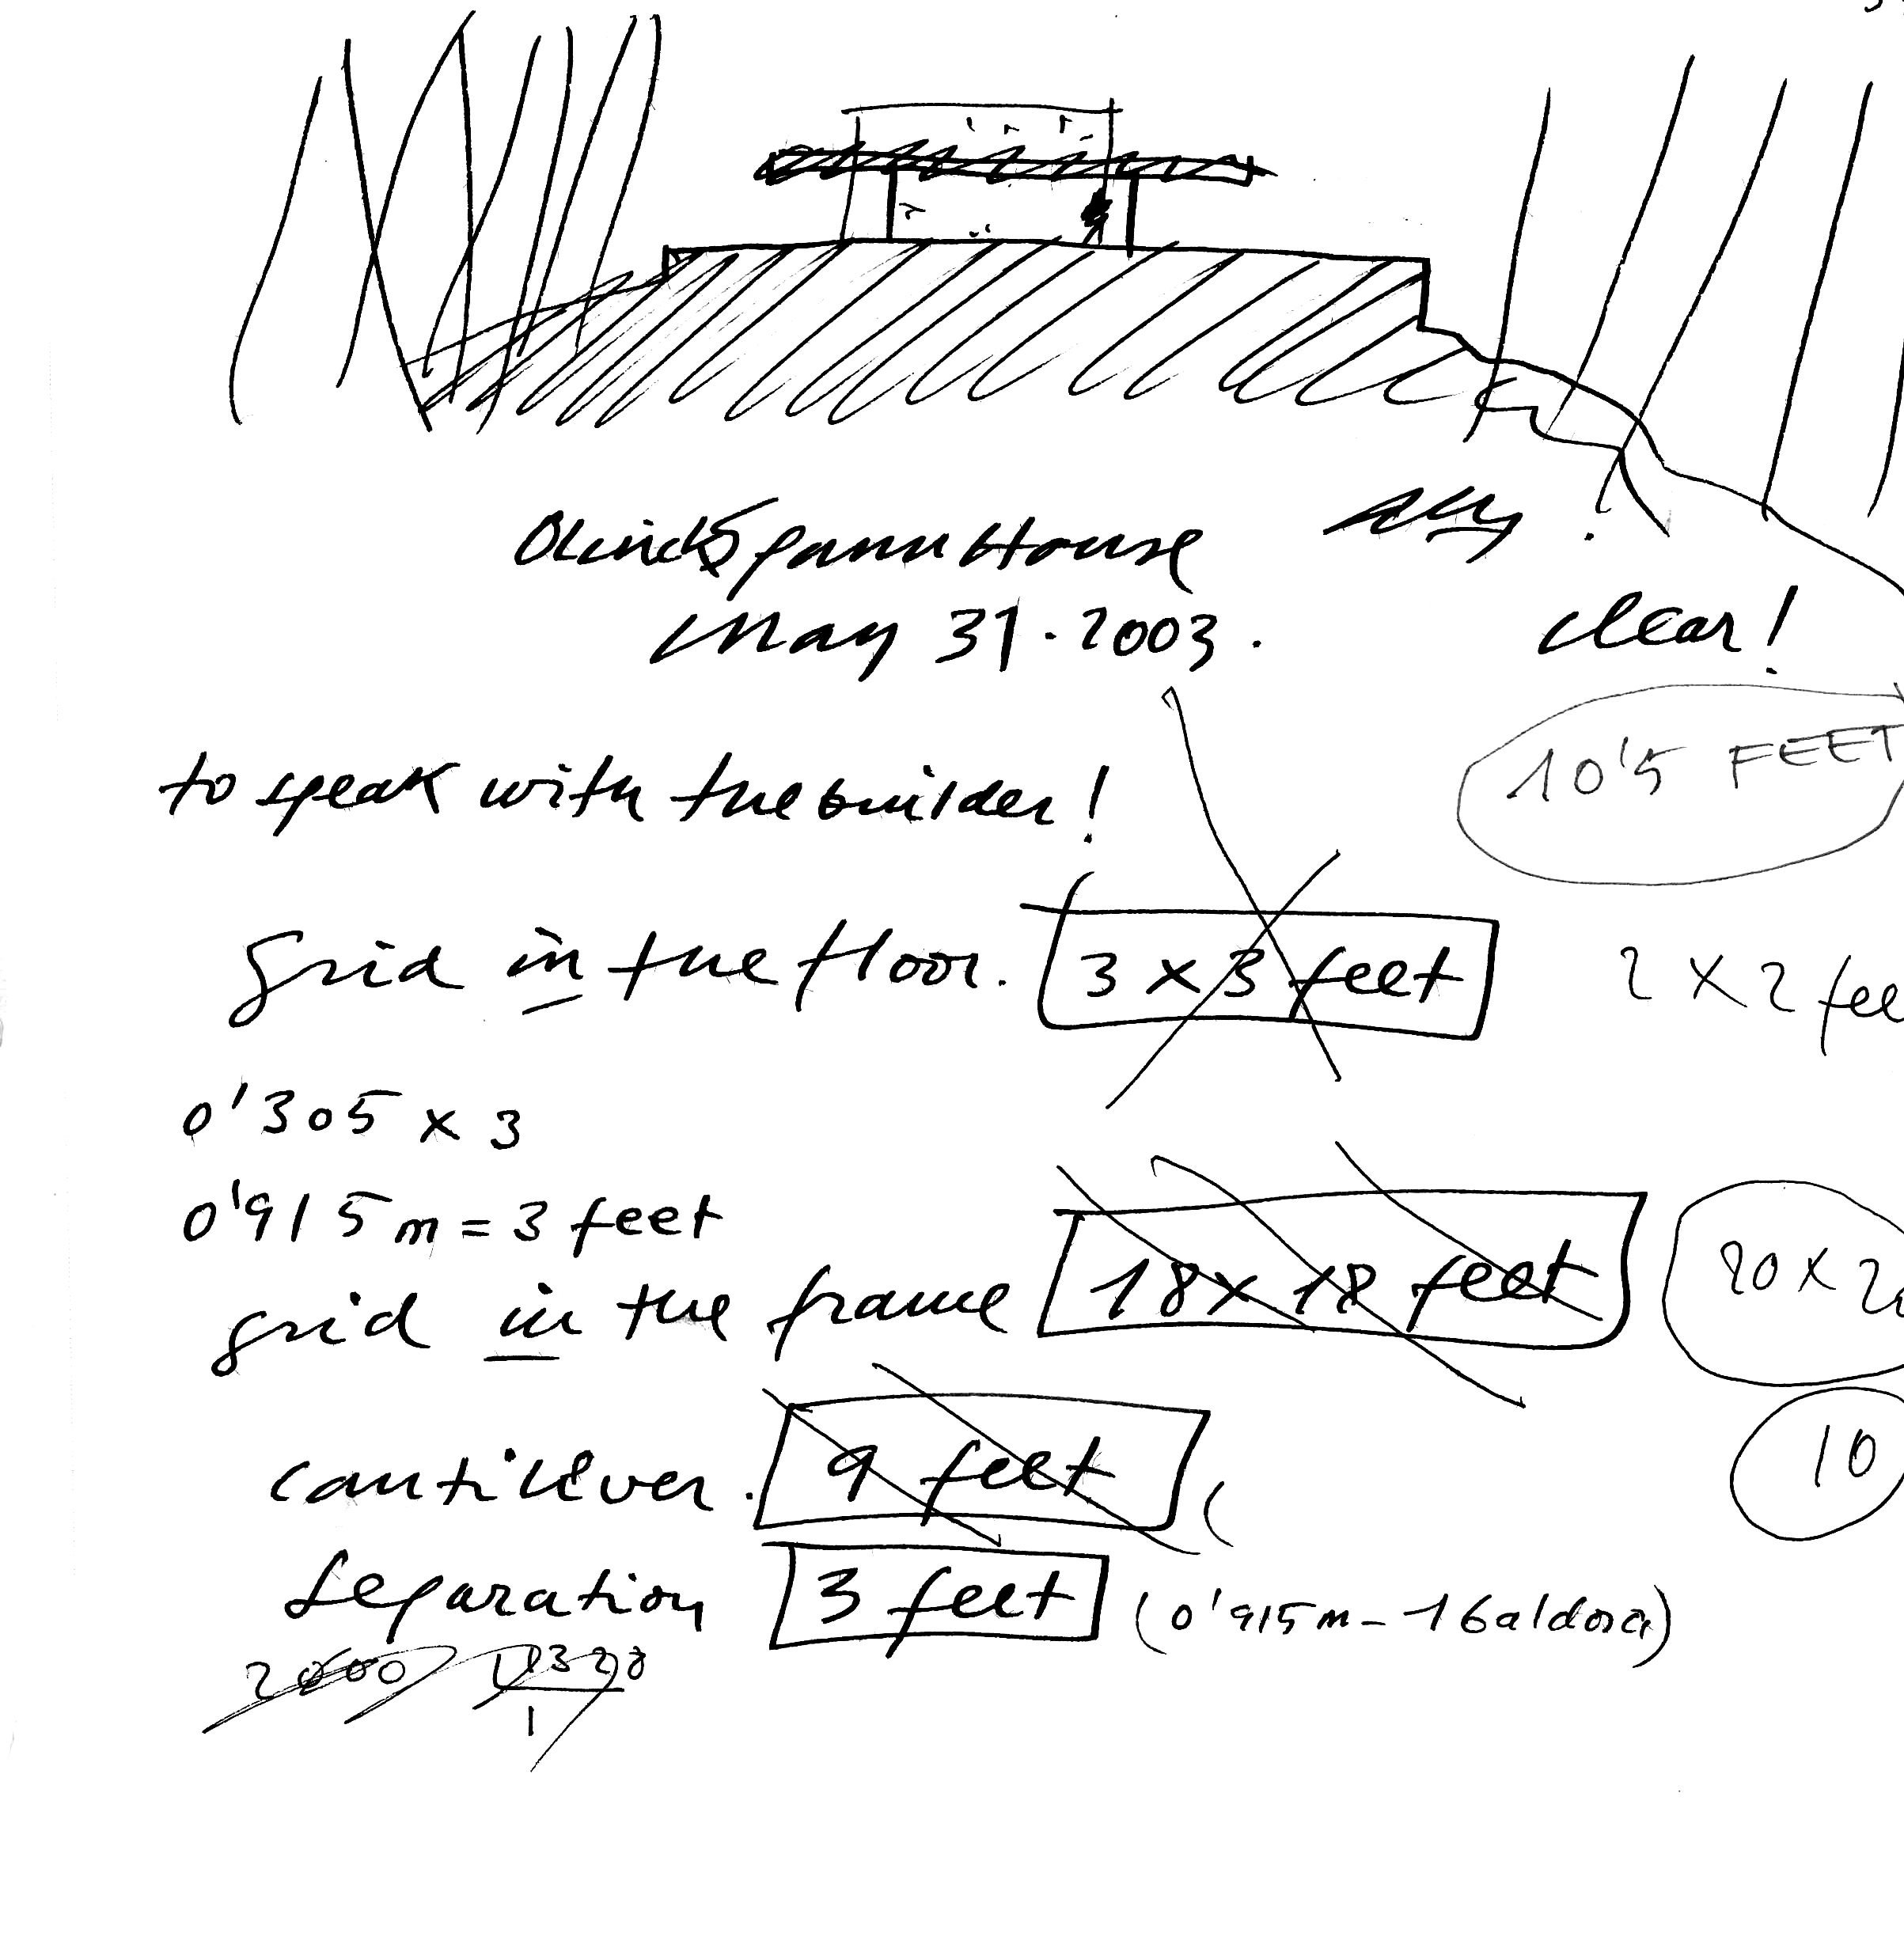 OlnickSpanu House
May 31 · 2003.
clear!
to speak with the builder!
10'5 FEET
grid in the floor. 3 x 3 feet 2 x 2 fee
0'305 x 3
0'915 m = 3 feet
grid in the frame 18 x 18 feet 20 x 20
cantilever. 9 feet ( 10
separation 3 feet (0'915 m - 1 baldosa)